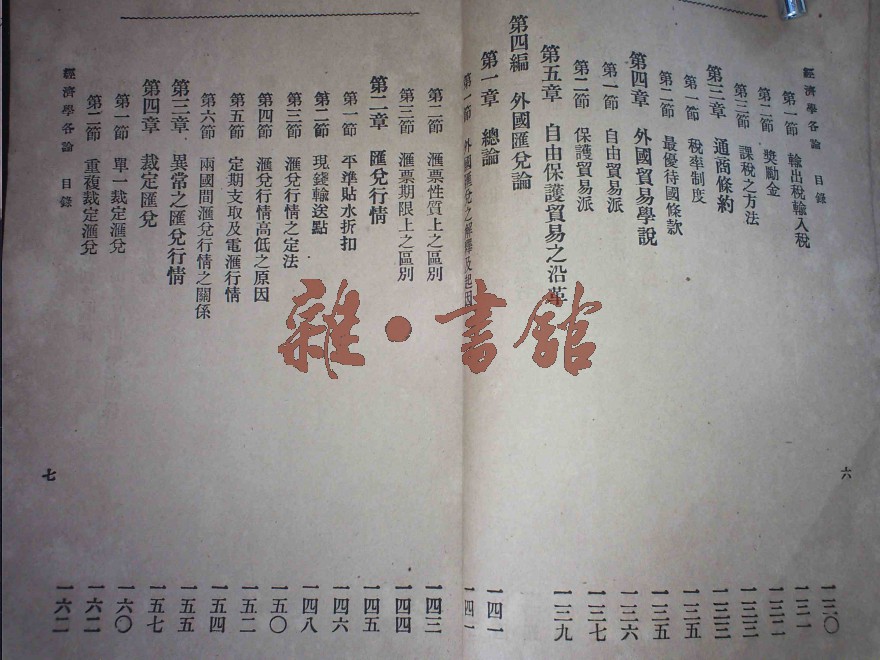 經濟學各論 目錄 六
第一節 輸出稅輸入稅 一三〇
第二節 獎勵金 一三一
第三節 課稅之方法 一三二
第三章 通商條約 一三三
第一節 稅率制度 一三三
第二節 最優待國條款 一三五
第四章 外國貿易學說 一三五
第一節 自由貿易派 一三六
第二節 保護貿易派 一三七
第五章 自由保護貿易之沿革 一三九
第四編 外國匯兌論
第一章 總論 一四一
第一節 外國匯兌之解釋及起因 一四一
第二節 滙票性質上之區別 一四三
第三節 滙票期限上之區別 一四四
第二章 匯兌行情 一四五
第一節 平準貼水折扣 一四六
第二節 現錢輸送點 一四八
第三節 滙兌行情之定法 一五〇
第四節 滙兌行情高低之原因 一五二
第五節 定期支取及電滙行情 一五四
第六節 兩國間滙兌行情之關係 一五五
第三章 異常之匯兌行情 一五七
第四章 裁定匯兌 一六〇
第一節 單一裁定滙兌 一六二
第二節 重複裁定滙兌 一六二
經濟學各論 目錄 七
雜·書館